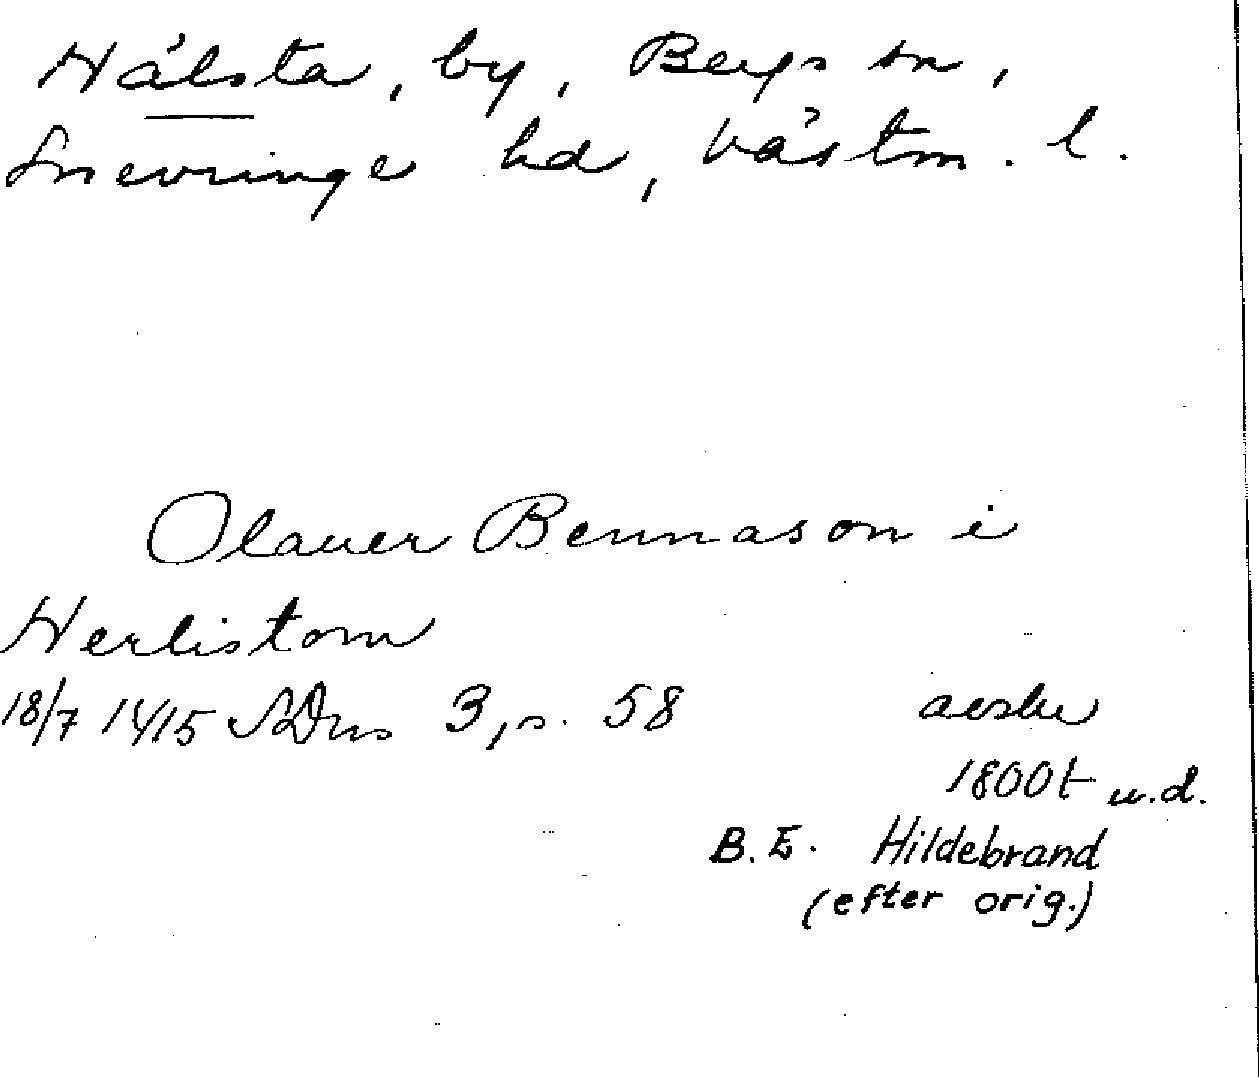 Hälsta, by, Bergs sn,
Snevringe hd, Västm. l.
Olauer Bennason i
Herlistom
18/7 1415 SDns 3, s. 58
avskr
1800t u.d.
B.E. Hildebrand
(efter orig.)